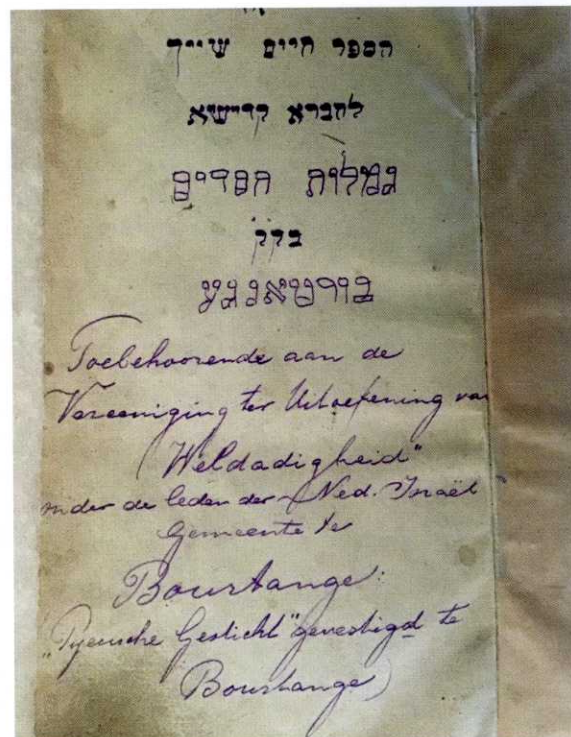 הספר חיים שייך
לחברא קדישא
גמלות חסדים
בקק
בורטאנגע
Toebehoorende aan de
Vereeniging ter Uitoefening van
"Weldadigheid"
onder de leden der Ned. Israël
Gemeente te
Bourtange:
gevestigd te
Bourtange)